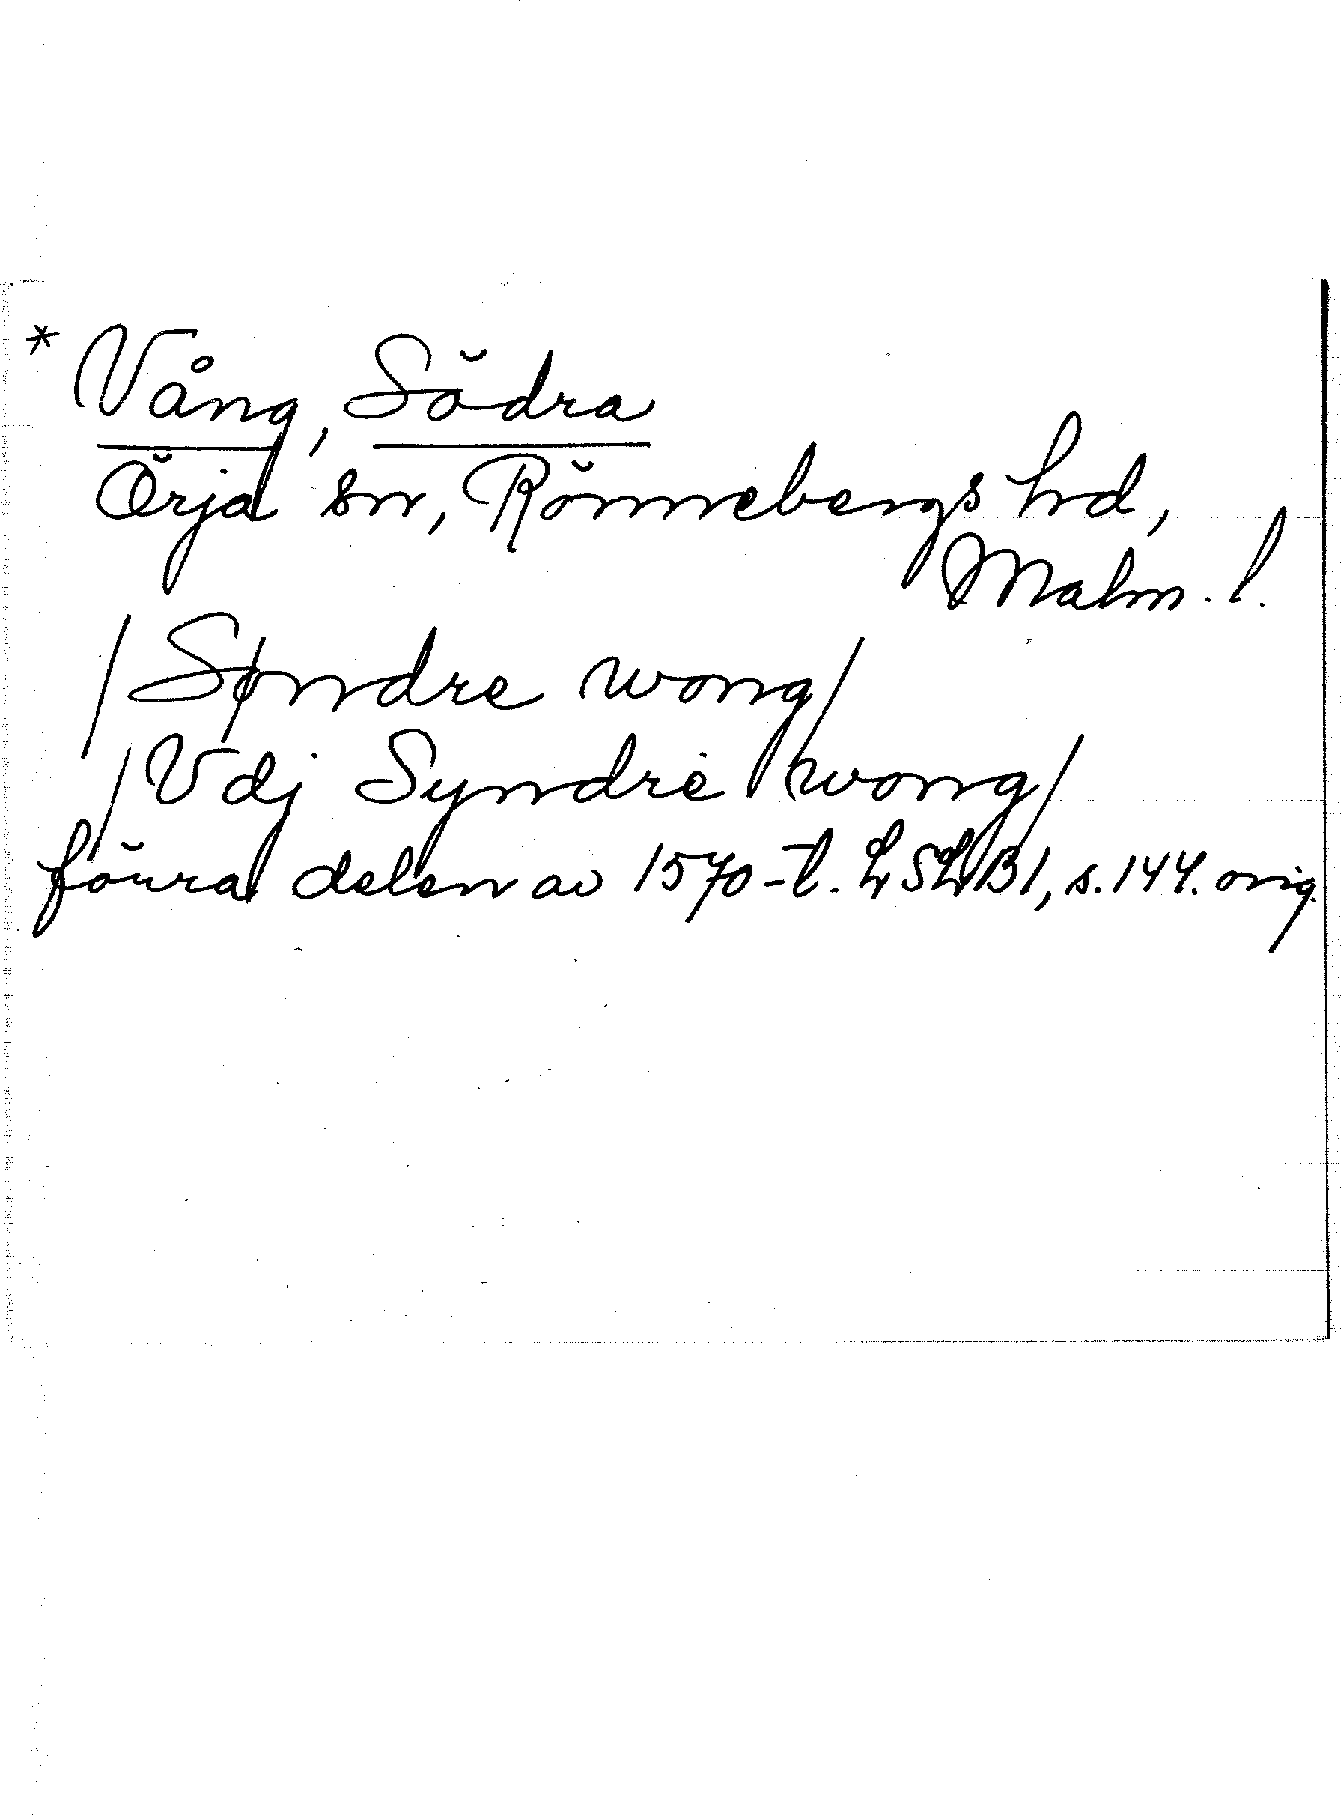 * Vång, Södra
Örja sn, Rönnebergs hd,
Malm. l.
/Søndre wong/
/Vdj Syndre wong/
förra delen av 1570-t. LSLB1, s. 144. orig.